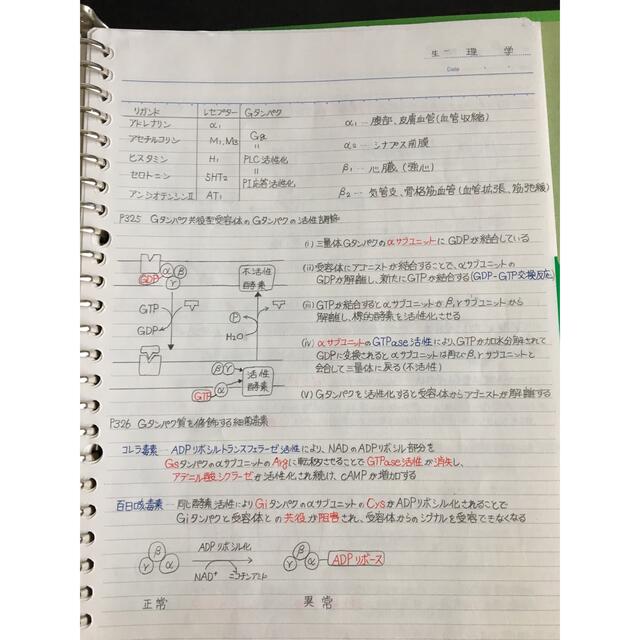 生理学
Date
リガンド レセプター Gタンパク
アドレナリン α1
アセチルコリン M1,M3 Gq
ヒスタミン H1 PLC活性化
セロトニン 5HT2 PI応答活性化
アンジオテンシンⅡ AT1
α1 … 腹部、皮膚血管(血管収縮)
α2 … シナプス前膜
β1 … 心臓(強心)
β2 … 気管支、骨格筋血管(血管拡張、筋弛緩)
P325 Gタンパク共役型受容体のGタンパクの活性調節
(i) 三量体Gタンパクのαサブユニットに GDPが結合している
(ii) 受容体にアゴニストが結合することで、αサブユニットの
GDPが解離し、新たにGTPが結合する(GDP-GTP交換反応)
(iii) GTPが結合するとαサブユニットがβ,γサブユニットから
解離し、標的酵素を活性化させる
(iv) αサブユニットのGTPase活性により、GTPが加水分解されて
GDPに変換されるとαサブユニットは再びβ,γサブユニットと
会合して三量体に戻る(不活性)
(V) Gタンパクを活性化すると受容体からアゴニストが解離する
GDP α β γ
不活性
酵素
GTP
GDP
P
H2O
β γ
GTP α
活性
酵素
P326 Gタンパク質を修飾する細菌毒素
コレラ毒素 ADPリボシルトランスフェラーゼ活性により、NADのADPリボシル部分を
GsタンパクのαサブユニットのArgに転移させることでGTPase活性が消失し、
アデニル酸シクラーゼが活性化され続け、cAMPが増加する
百日咳毒素 同じ酵素活性によりGiタンパクのαサブユニットのCysがADPリボシル化されることで
Giタンパクと受容体との共役が阻害され、受容体からのシグナルを受容できなくなる
β γ α
ADPリボシル化
NAD+ ニコチンアミド
β γ α ADPリボース
正常 異常